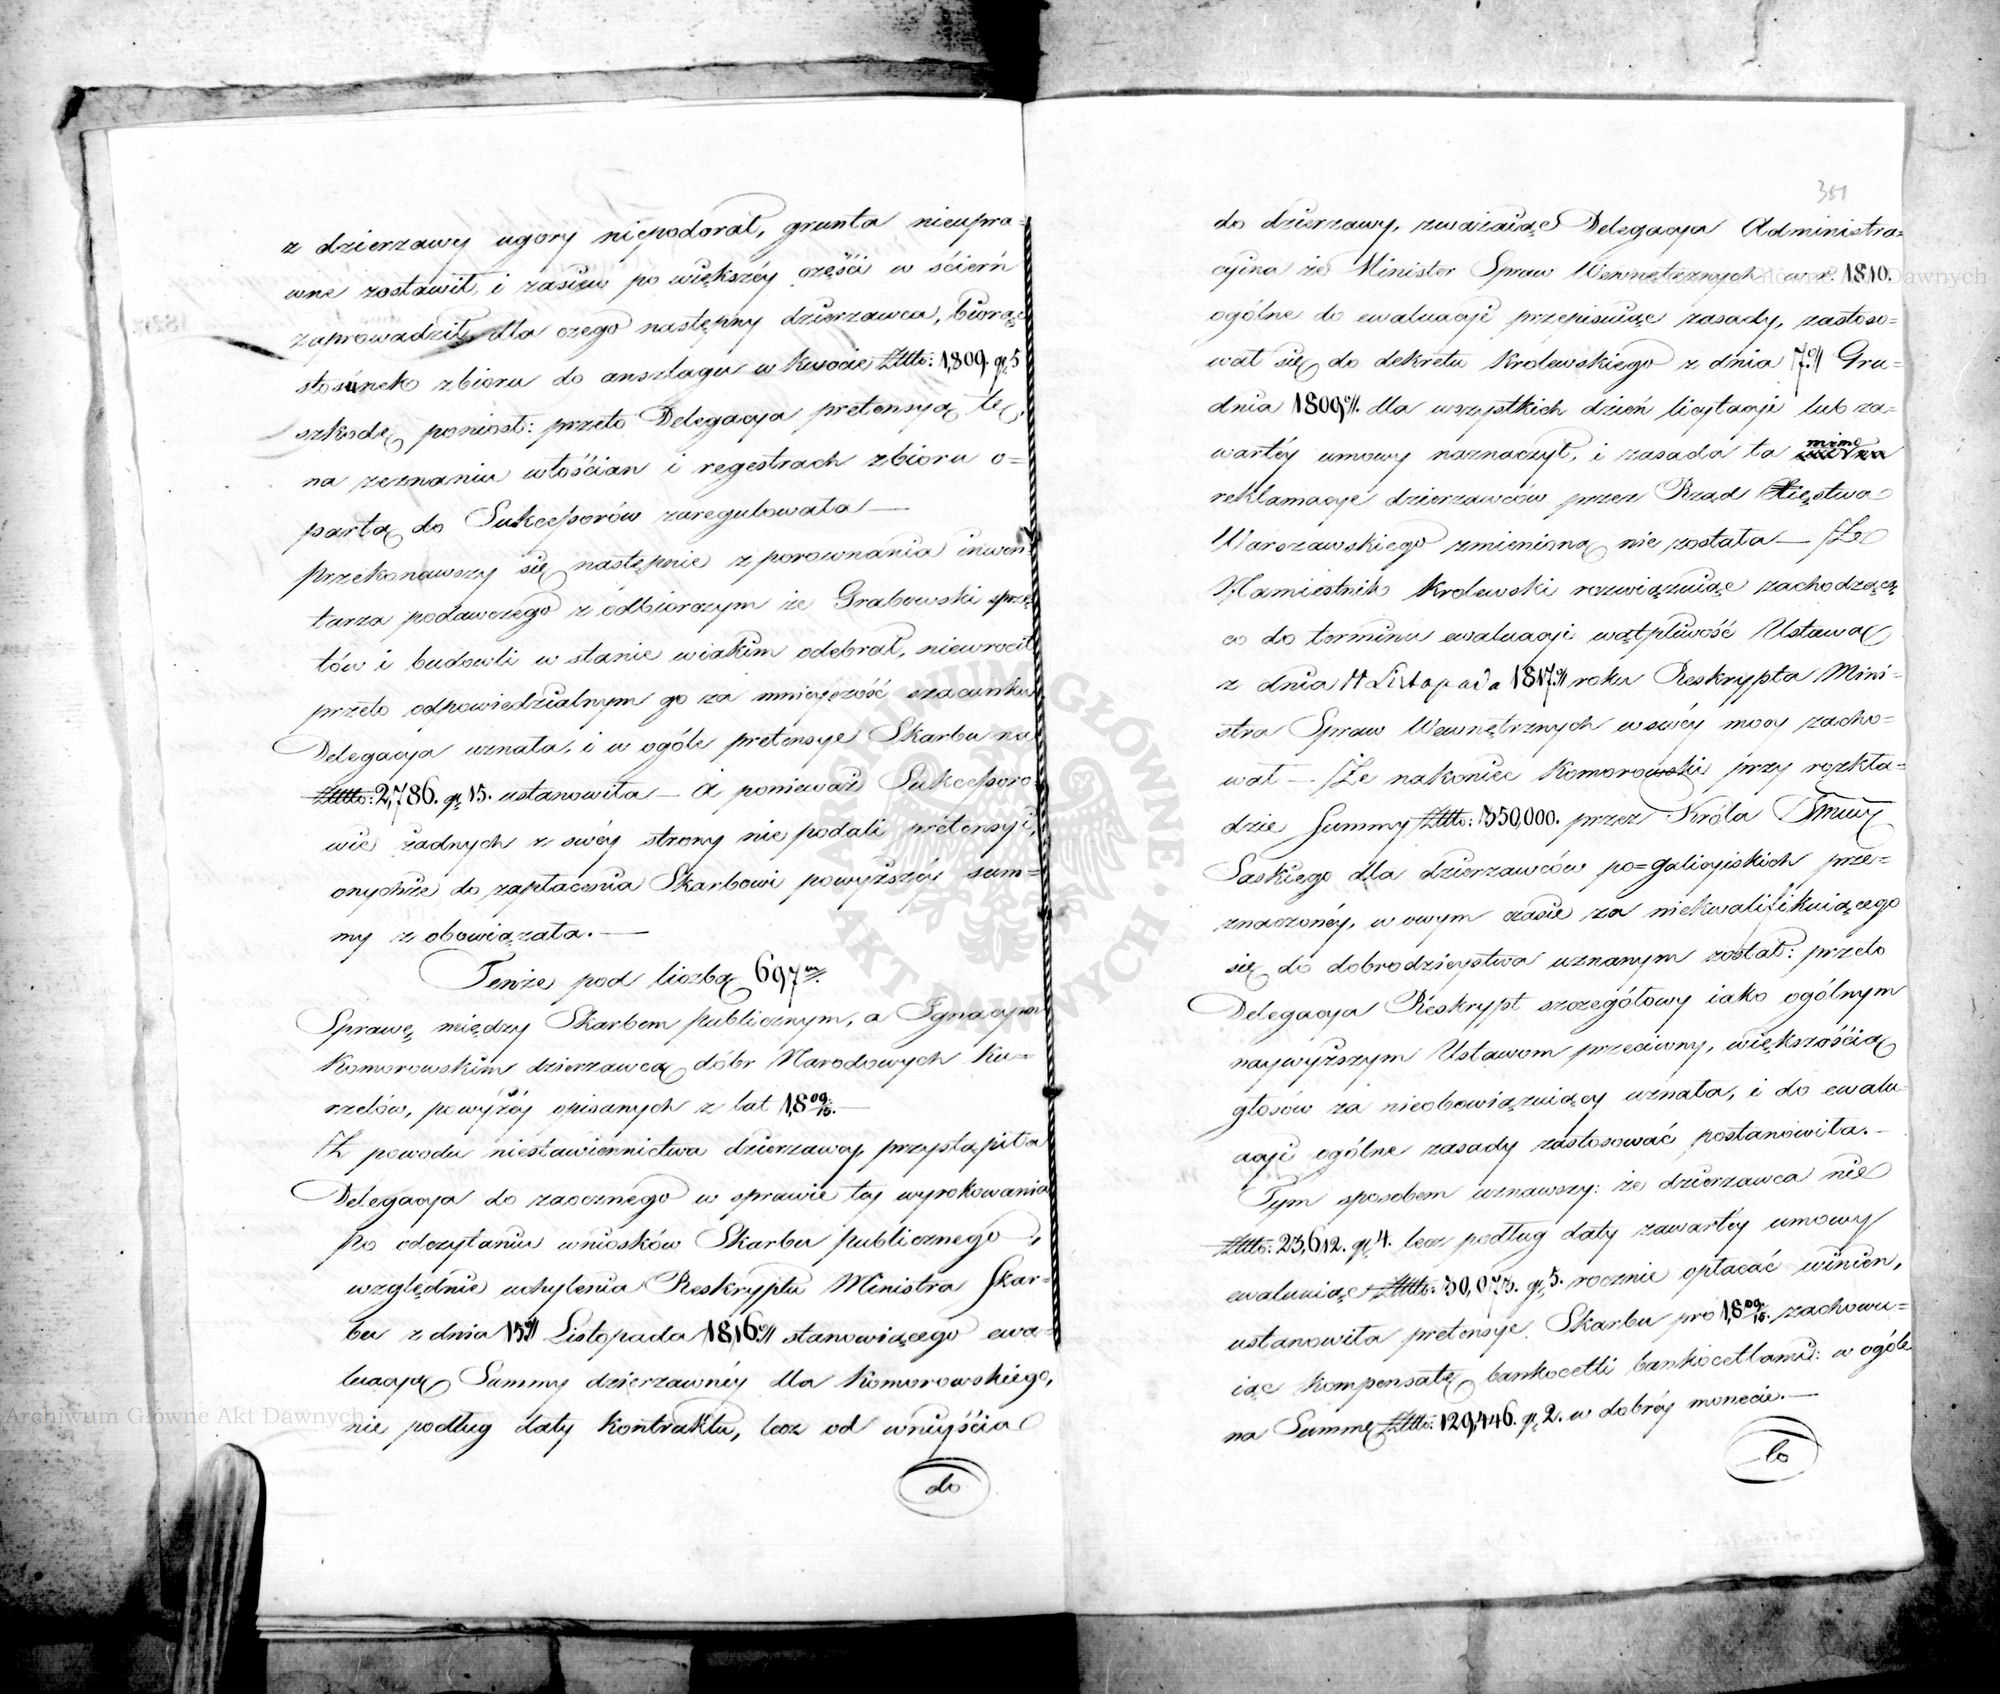 z dzierzawy ugory niepodorał, grunta nieupra=
wne zostawił, i zasiew po większéy części w ścierń
zaprowadził, dla czego następny dzierzawca, biorąc
stosunek zbioru do anszlagu w kwocie Złtto: 1,809. gr 5
szkodę poniosł: przeto Delegacya pretensyą tę,
na zeznaniu włościan i regestrach zbioru o=
partą do Sukcessorów zaregulowała —
Przekonawszy się następnie z porownania inwen
tarza podawczego z odbiorczym że Grabowski sprzę
tów i budowli w stanie w iakim odebrał, niewrocił
przeto odpowiedzialnym go za mnieyszość szacunku
Delegacya uznała, i w ogóle pretensye Skarbu na
Złtto: 2,786. gr 15. ustanowiła — A ponieważ Sukcessoro=
wie żadnych z swéy strony nie podali pretensyi,
onychże do zapłacenia Skarbowi powyższéy sum=
my zobowiązała. —
Tenże pod liczbą 697m.
Sprawę między Skarbem publicznym, a Ignacym
Komorowskim dzierzawcą dóbr Narodowych Ku=
rzelów, powyżéy opisanych z lat 18 09/15. —
Z powodu niestawiennictwa dzierzawcy, przystąpiła
Delegacya do zaocznego w sprawie tey wyrokowania
Po odczytaniu wniosków Skarbu publicznego,
względnie uchylenia Reskryptu Ministra Skar=
bu z dnia 15go Listopada 1816go stanowiącego ewa=
luacyą Summy dzierzawnéy dla Komorowskiego,
nie podług daty kontraktu, lecz od wniyścia
do
351
do dzierzawy, zważaiąc Delegacya Administra=
cyina że Minister Spraw Wewnętrznych w r. 1810.
ogólne do ewaluacyi przepisuiąc zasady, zastoso=
wał się do dekretu Krolewskiego z dnia 7go Gru=
dnia 1809go dla wszystkich dzień licytacyi lub za=
wartéy umowy naznaczył, i zasada ta mimo
reklamacye dzierzawców przez Rząd Xięstwa
Warszawskiego zmienioną nie została — Że
Namiestnik Krolewski rozwiązuiąc zachodzącą
co do terminu ewaluacyi wątpliwość Ustawą
z dnia 11 Listopada 1817go roku Reskrypta Mini=
stra Spraw Wewnętrznych w swéy mocy zacho=
wał — Że nakoniec Komorowski przy rozkła=
dzie Summy Złtto: 350,000. przez Króla Jmci
Saskiego dla dzierzawców po=galicyiskich prze=
znaczonéy, w owym czasie za niekwalifikuiącego
się do dobrodzieystwa uznanym został: przeto
Delegacya Reskrypt szczegółowy iako ogólnym
naywyższym Ustawom przeciwny, większością
głosów za nieobowiązuiący uznała, i do ewalu=
acyi ogólne zasady zastosować postanowiła. —
Tym sposobem uznawszy: że dzierzawca nie
Złtto: 23,612. gr 4. lecz podług daty zawartéy umowy
ewaluuiąc Złtto: 30,073. gr 5. rocznie opłacać winien,
ustanowiła pretensye Skarbu pro 18 09/15. zachowu=
iąc kompensatę bankocetli bankocetlami: w ogóle
na Summę Złtto: 129,446. gr 2. w dobréy monecie. —
Co
ARCHIWUM GŁÓWNE AKT DAWNYCH
Archiwum Główne Akt Dawnych
Archiwum Główne Akt Dawnych